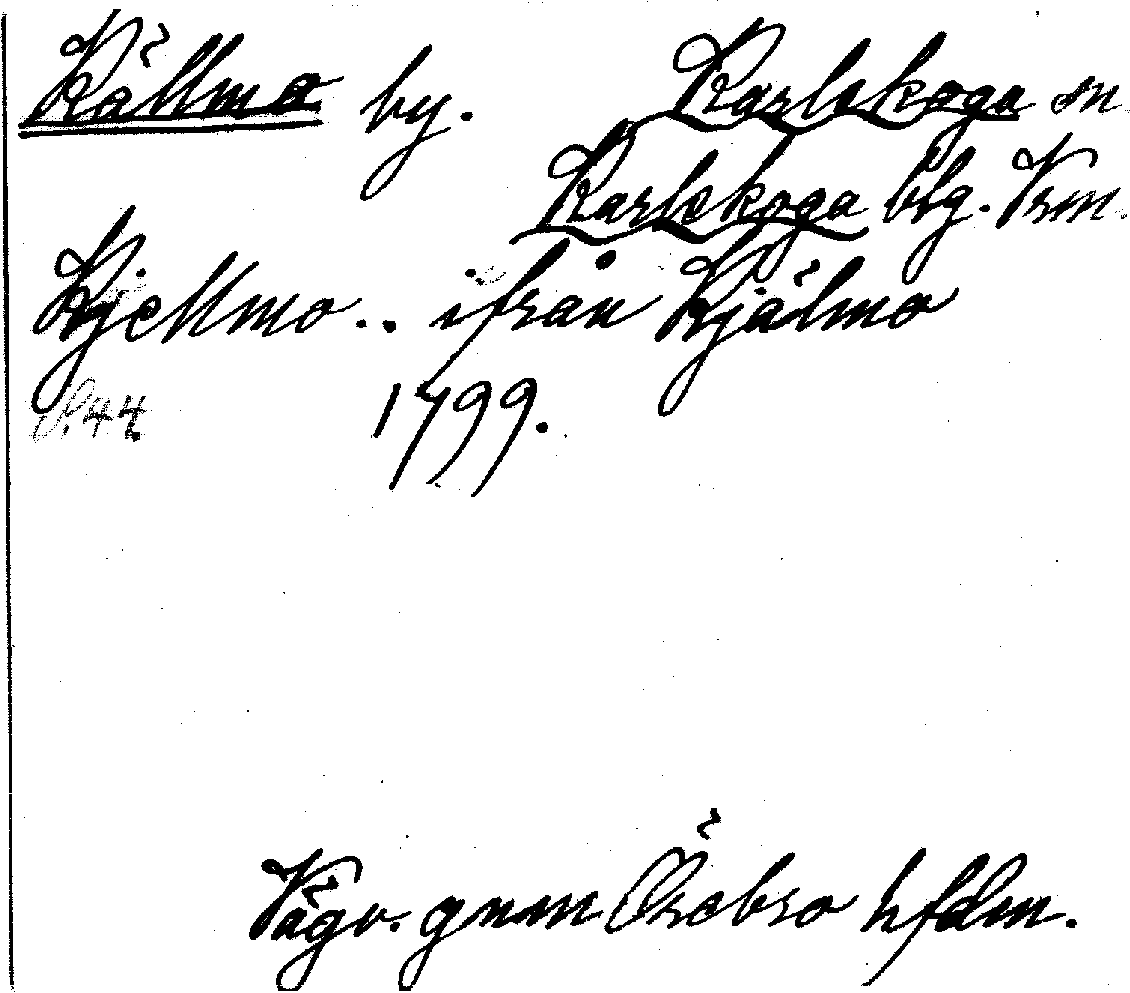 Källmo by. Karlskoga sn
Karlskoga blg. Vrm.
Kjellmo.. ifrån Kjälmo
S. 44. 1799.
Vägv. gnm Örebro hfdm.